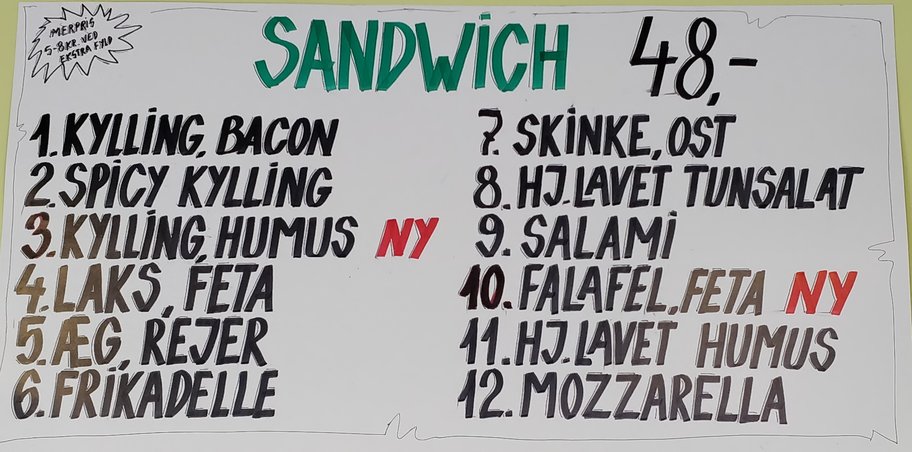 MERPRIS
5-8 KR. VED
EKSTRA FYLD
SANDWICH 48,-
1. KYLLING, BACON
2. SPICY KYLLING
3. KYLLING, HUMUS NY
4. LAKS, FETA
5. ÆG, REJER
6. FRIKADELLE
7. SKINKE, OST
8. HJ.LAVET TUNSALAT
9. SALAMI
10. FALAFEL, FETA NY
11. HJ.LAVET HUMUS
12. MOZZARELLA